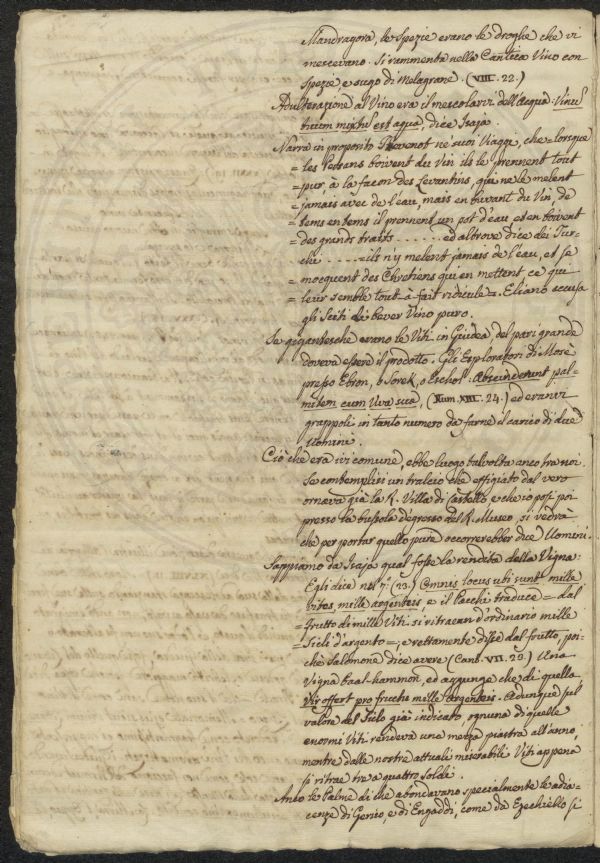 Mandragora, le Spezie erano le droghe che vi
mescevano. Si rammenta nella Cantica Vino con
Spezie, e sugo di Melagrane. (VIII. 22.)
Adulterazione al Vino era il mescolarvi dell'acqua. Vinum
tuum mixtum est aqua, dice Isaja.
Narra in proposito Thevenot ne' suoi Viaggi, che = lorsque
= les Persans boivent du Vin ils le prennent tout
= pur, à la facon des Levantins, qui ne le melent
= jamais avec de l'eau, mais en buvant du Vin, de
= tems en tems il prennent un pot d'eau et en boivent
= des grands traits ...... ed altrove dice dei Tur-
chi ..... = ils n'y melent jamais de l'eau, et se
= mocquent des Chretiens qui en mettent ce qui
= leur semble tout-à-fait ridicule =. Eliano accusa
gli Sciti di bever Vino puro.
Se gigantesche erano le Viti in Giudea, del pari grande
doveva essere il prodotto. Gli Esploratori di Mosè
presso Ebron, o Sorek, o Eschol. Absciderunt pal-
mitem cum Uva sua, (Num. XIII. 24.) ed eranvi
grappoli in tanto numero da farne il carico di due
Uomini.
Ciò che era ivi comune, ebbe luogo talvolta anco tra noi.
Se contemplisi un tralcio che effigiato dal vero
ornava già la R. Villa di Castello e che io posi poi
presso la bussola d'egresso del R. Museo, si vedrà
che per portar quello pure occorrerebber dice Uomini.
Sappiamo da Isaja qual fosse la rendita della Vigna.
Egli dice nel 7: (23.) Omnis locus ubi sunt mille
vites, mille argenteis e il Pacchi traduce = dal
= frutto di mille Viti si ritraean d'ordinario mille
= Sicli d'argento =; e rettamente disse dal frutto, poi-
chè Salomone dice avere (Cant. VII. 23.) Una
Vigna baal-hammon, ed aggiunge che di quella
Vir offert pro fructu mille argenteis. Adunque pel
valore del Siclo già indicato, ognuna di quelle
enormi Viti rendeva una mezza piastra all'anno,
mentre dalle nostre attuali miserabili Viti appena
si ritrae tre a quattro soldi.
Anco le Palme di che abondavano specialmente le adia-
cenze di Gerico, e di Engaddi, come da Ezechiello si